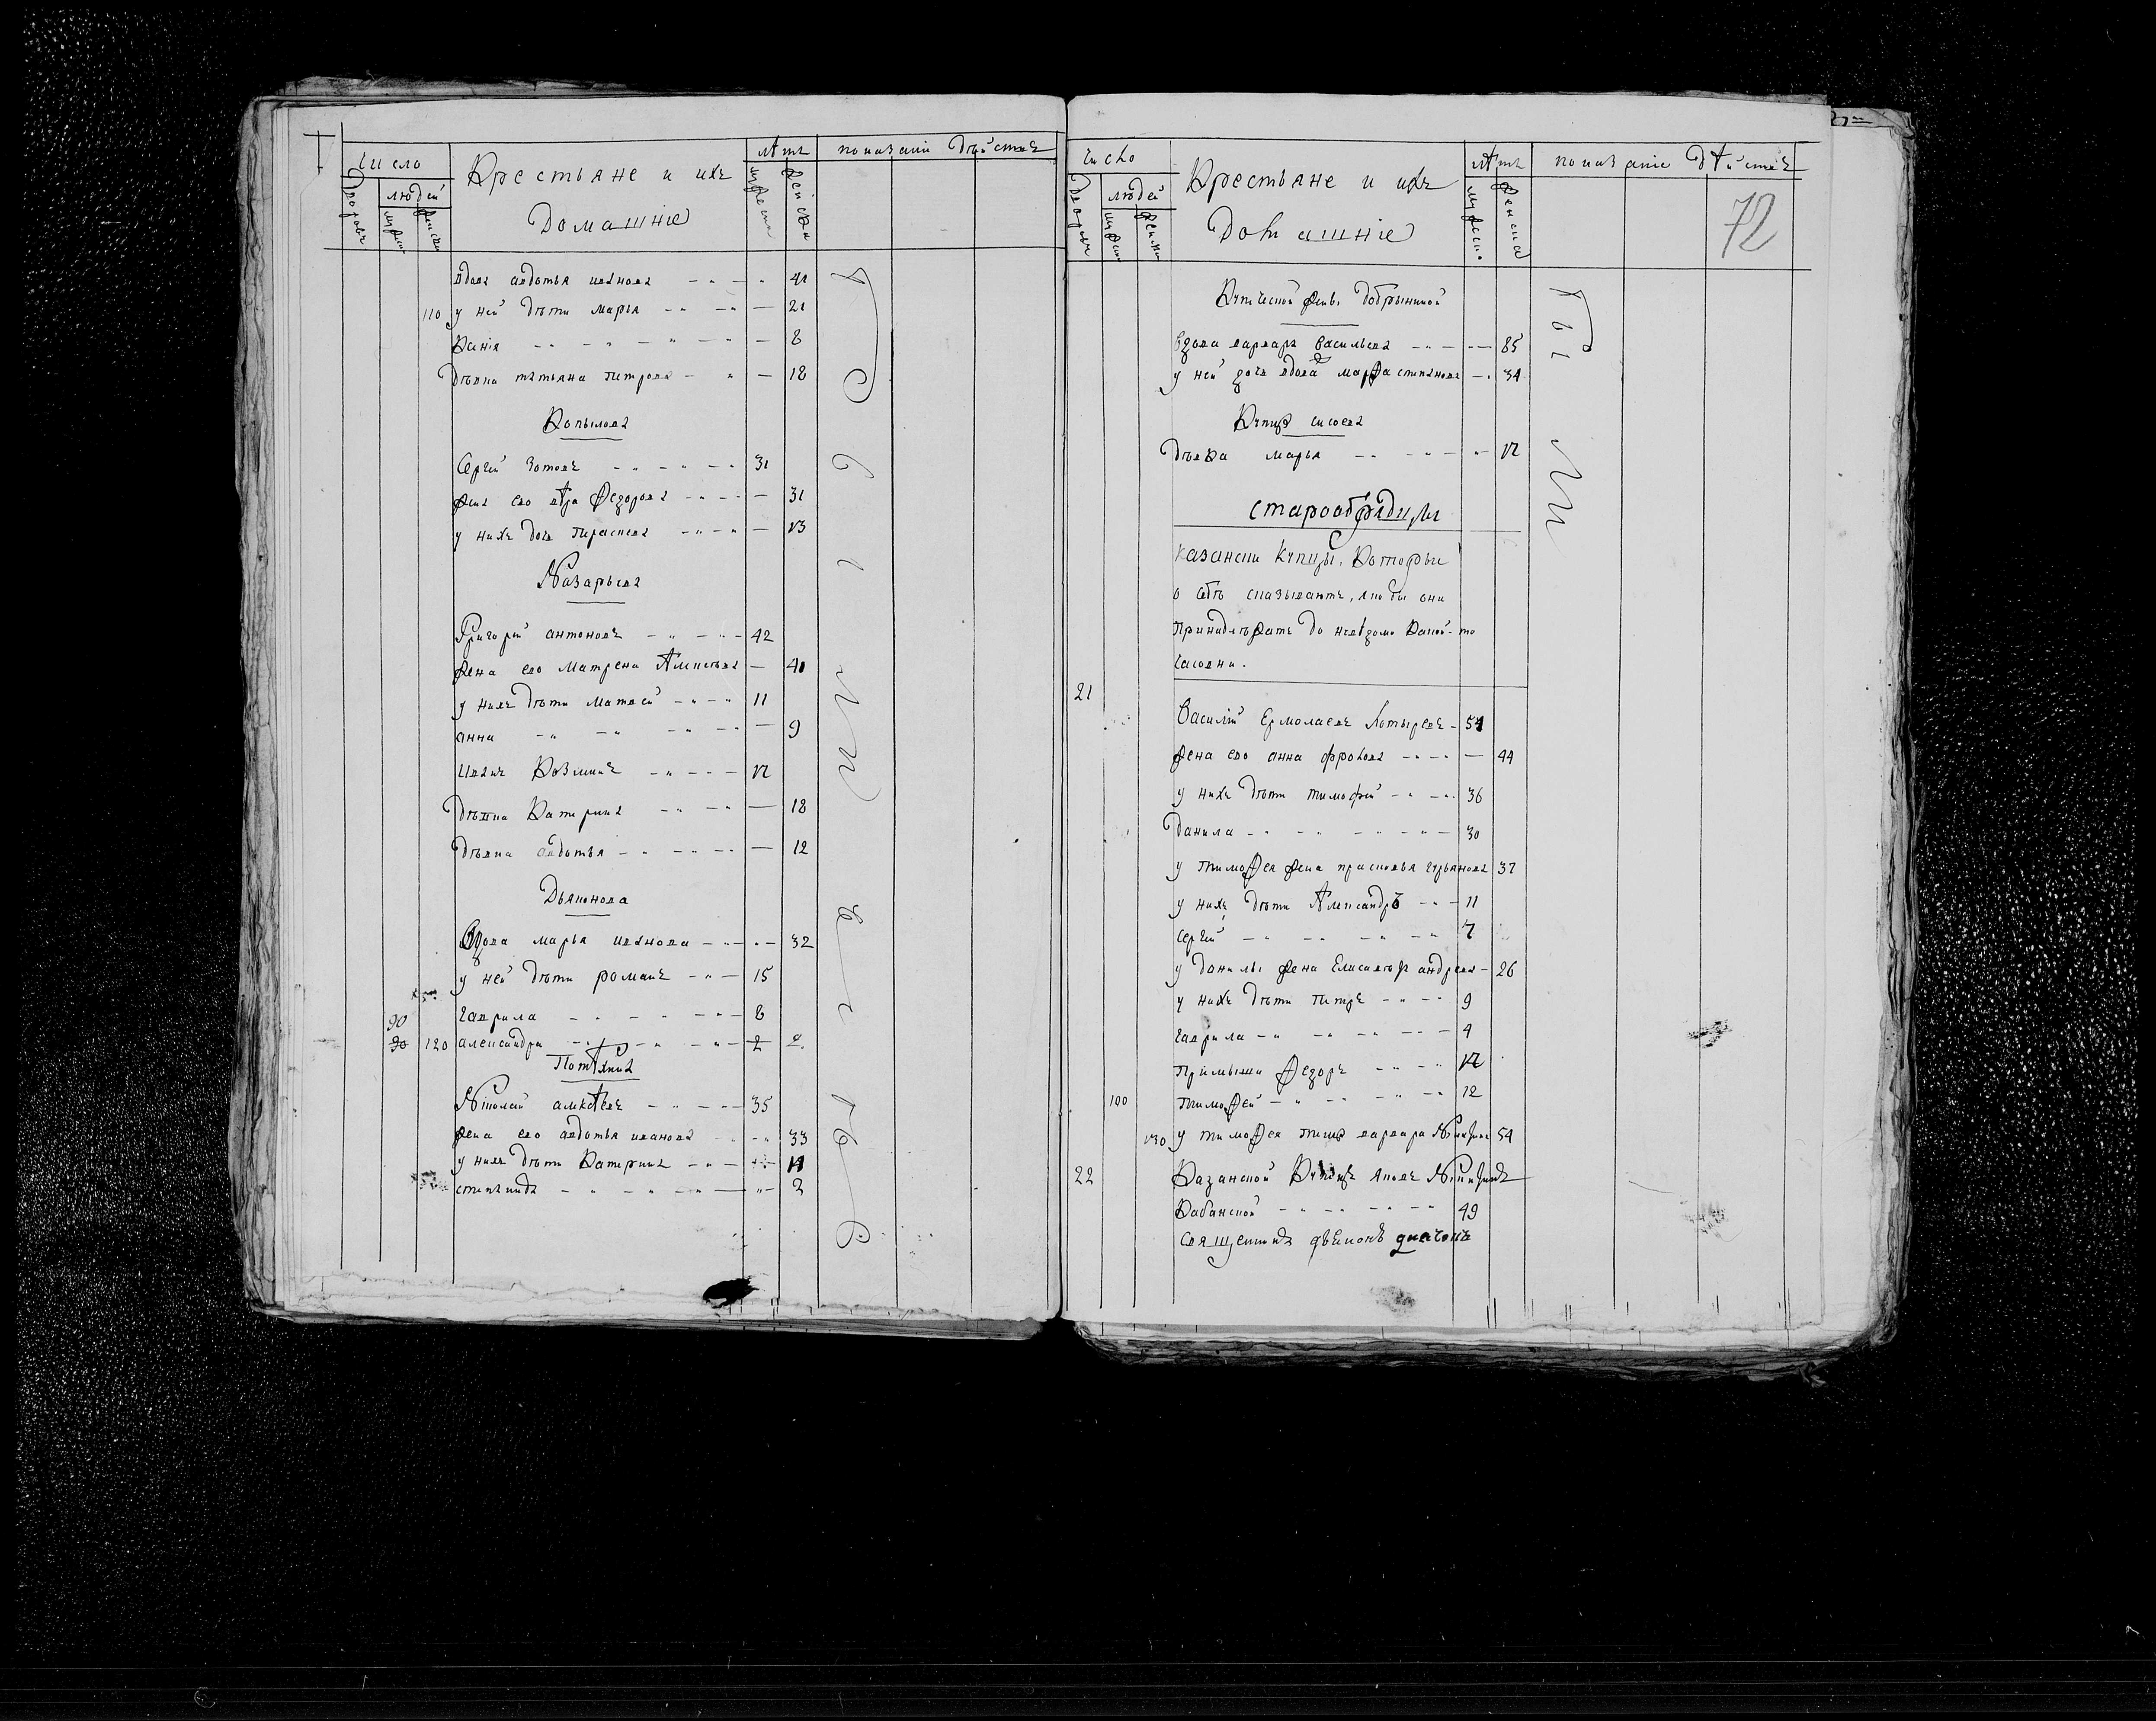 число
Крестьяне и ихъ
Домашніе
лѣтъ
показаніе дѣйствъ
дворовъ
людей
вдова авдотья иванова 41
110 у ней дѣти марья 21
8
дѣвка татьяна петрова 18
Копылова
Сергій Зотовъ 31
жена ево Федорова 31
у нихъ дочь 13
Назарьева
Григорій антоновъ 42
жена ево Матрена Алексѣева 40
у нихъ дѣти Матвей 11
анна 9
Иванъ Козминъ 17
дѣвка Катерина 18
дѣвка авдотья 12
Дьяконова
Вдова марья иванова 32
у ней дѣти романъ 15
90 гаврила 8
120 александра 2
Потѣхина
Николай алексѣевъ 35
жена ево авдотья иванова 33
у нихъ дѣти Катерина 11
степанида 2
были
число
Крестьяне и ихъ
Домашніе
лѣтъ
показаніе дѣйствъ
дворовъ
людей
72
Купеческой жены Добрыниной
Вдова варвара Васильева 85
у ней дочь вдова марфа степанова 34
Купца сысоева
Дѣвка марья 17
старообрядцы
казански купцы, Которые
о себѣ сказываютъ, якобы они
Принадлежатъ до невѣдомо какой-то
часовни.
21
Василій Ермолаевъ Котыревъ 54
жена ево анна фролова 44
у нихъ дѣти тимофей 36
Данила 30
у тимофея жена прасковья гурьянова 37
у нихъ дѣти Александръ 11
сергей 7
у данилы жена Елисавета андреева 26
у нихъ дѣти петръ 9
гаврила 4
Пріемыши Федоръ 17
100 тимофей 12
130 у тимофея теща варвара 54
22 Казанской Купецъ яковъ Никитинъ
Кабанской 49
были